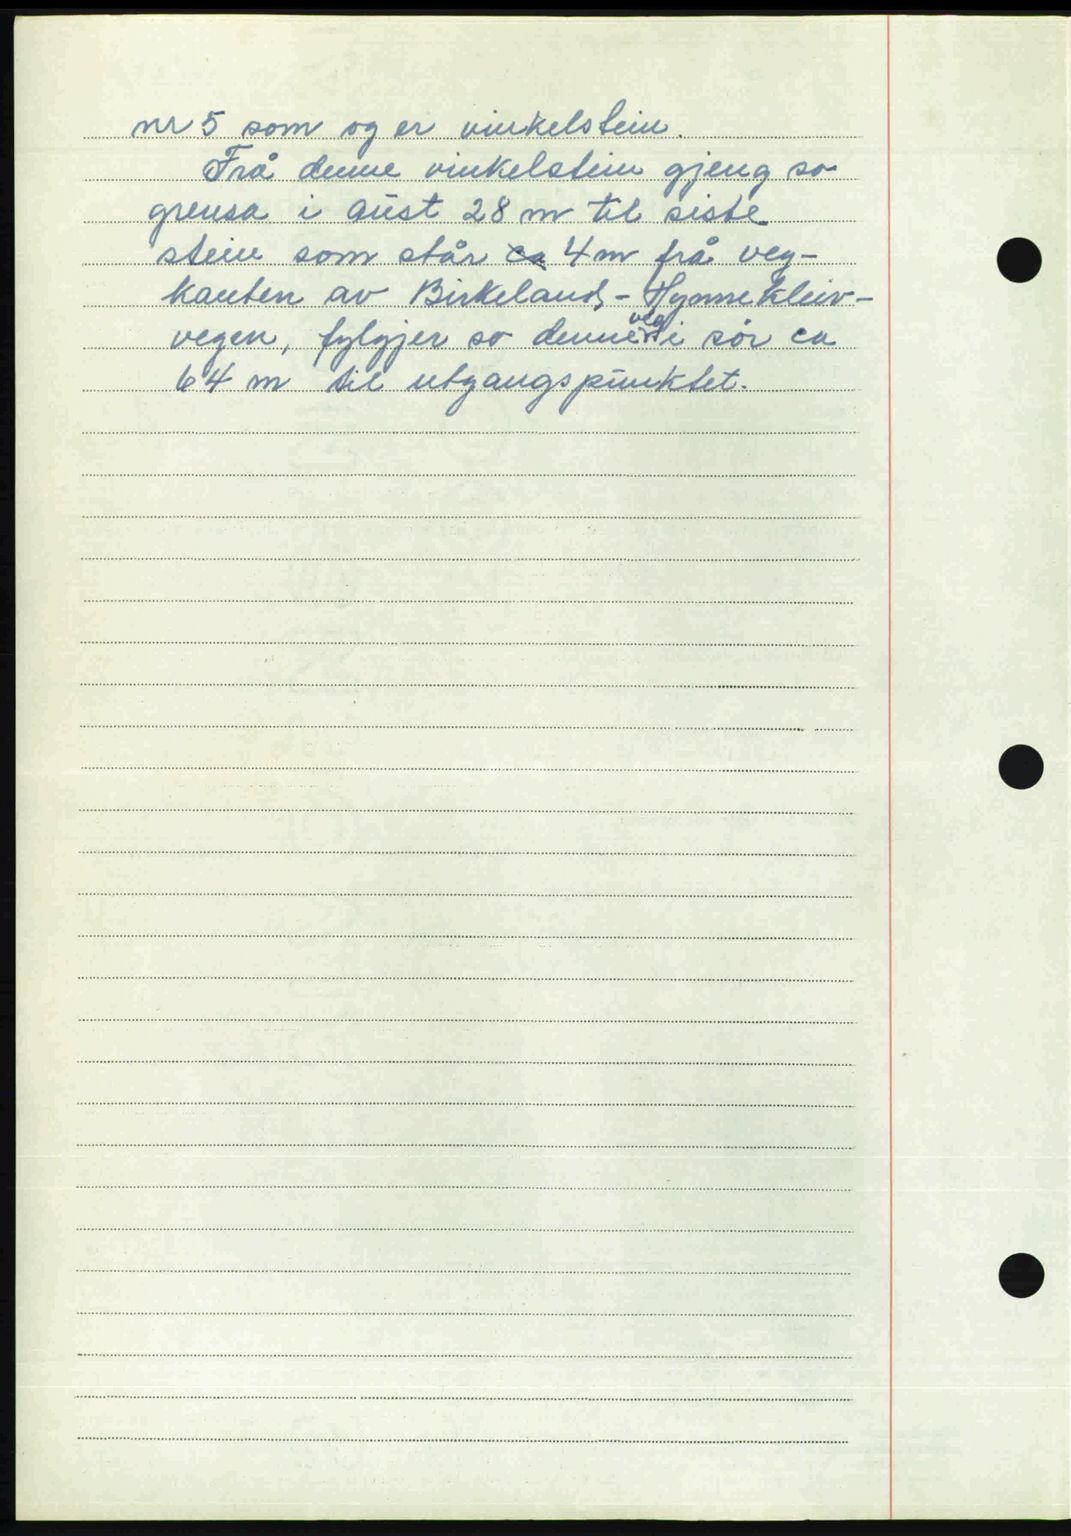 nr 5 som og er vinkelstein.
Frå denne vinkelstein gjeng so
grensa i aust 28 m til siste
stein som står ca 4 m frå veg-
kanten av Birkeland, - Hynnekleiv-
vegen, fylgjer so denne veg i sør ca
64 m til utgangspunktet.